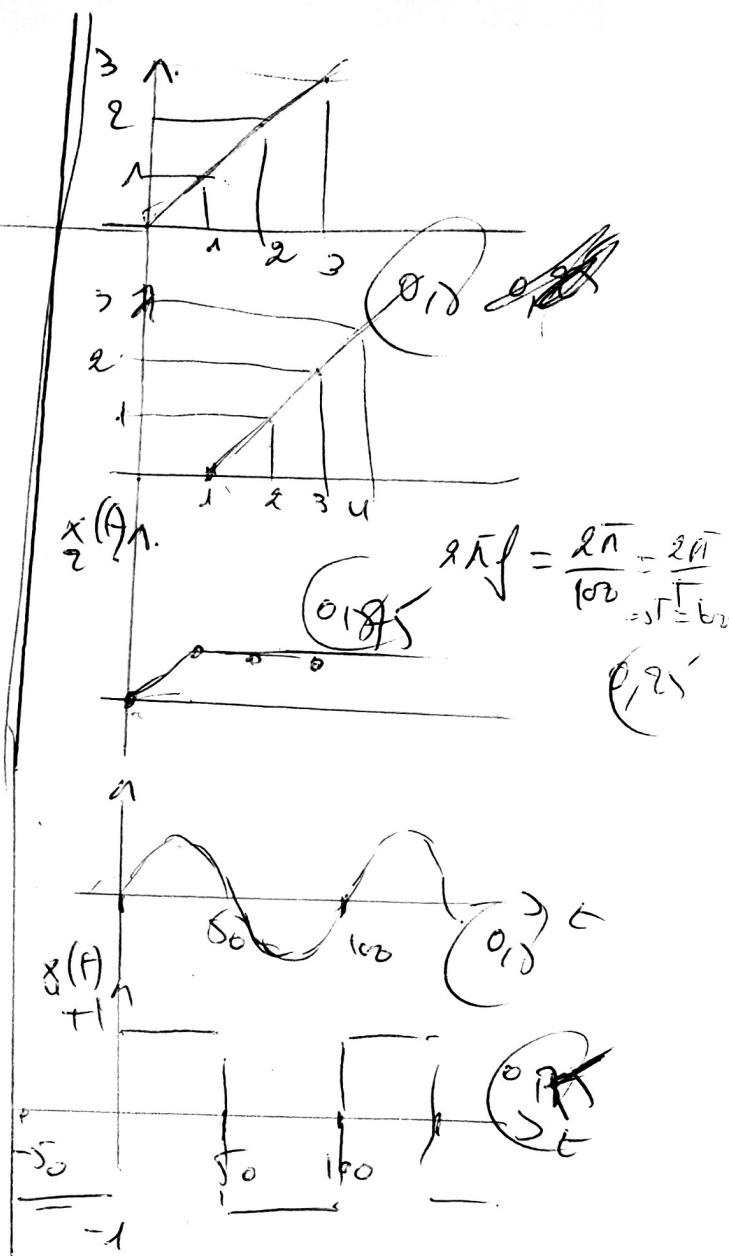 3
2
1
1 2 3
3
2
1
1 2 3 4
x2(t)
2πf = 2π/100 = 2π/T
=> T = 100
0,25
50 100 t
x4(t)
+1
-50 50 100 t
-1